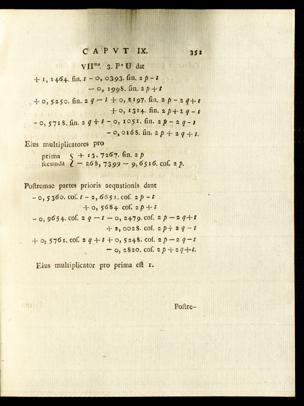 CAPVT IX. 351
VII<sup>ma</sup>. 3. P<sup>a</sup> U dat
+ 1, 1464. sin. t - 0, 0393. sin. 2 p - t
- 0, 1998. sin. 2 p + t
+ 0, 5250. sin. 2 q - t + 0, 2197. sin. 2 p - 2 q + t
+ 0, 1314. sin. 2 p + 2 q - t
- 0, 5718. sin. 2 q + t - 0, 1051. sin. 2 p - 2 q - t
- 0, 0168. sin. 2 p + 2 q + t.
Eius multiplicatores pro
prima { + 13, 7267. sin. 2 p
secunda { - 268, 7399 - 9, 6516. cos. 2 p.
Postremae partes prioris aequationis dant
- 0, 5360. cos. t - 2, 6051. cos. 2 p - t
+ 0, 5684 cos. 2 p + t
- 0, 9654. cos. 2 q - t - 0, 2479. cos. 2 p - 2 q + t
+ 2, 0028. cos. 2 p + 2 q - t
+ 0, 5761. cos. 2 q + t + 0, 5248. cos. 2 p - 2 q - t
- 0, 2820. cos. 2 p + 2 q + t.
Eius multiplicator pro prima est 1.
Postre-